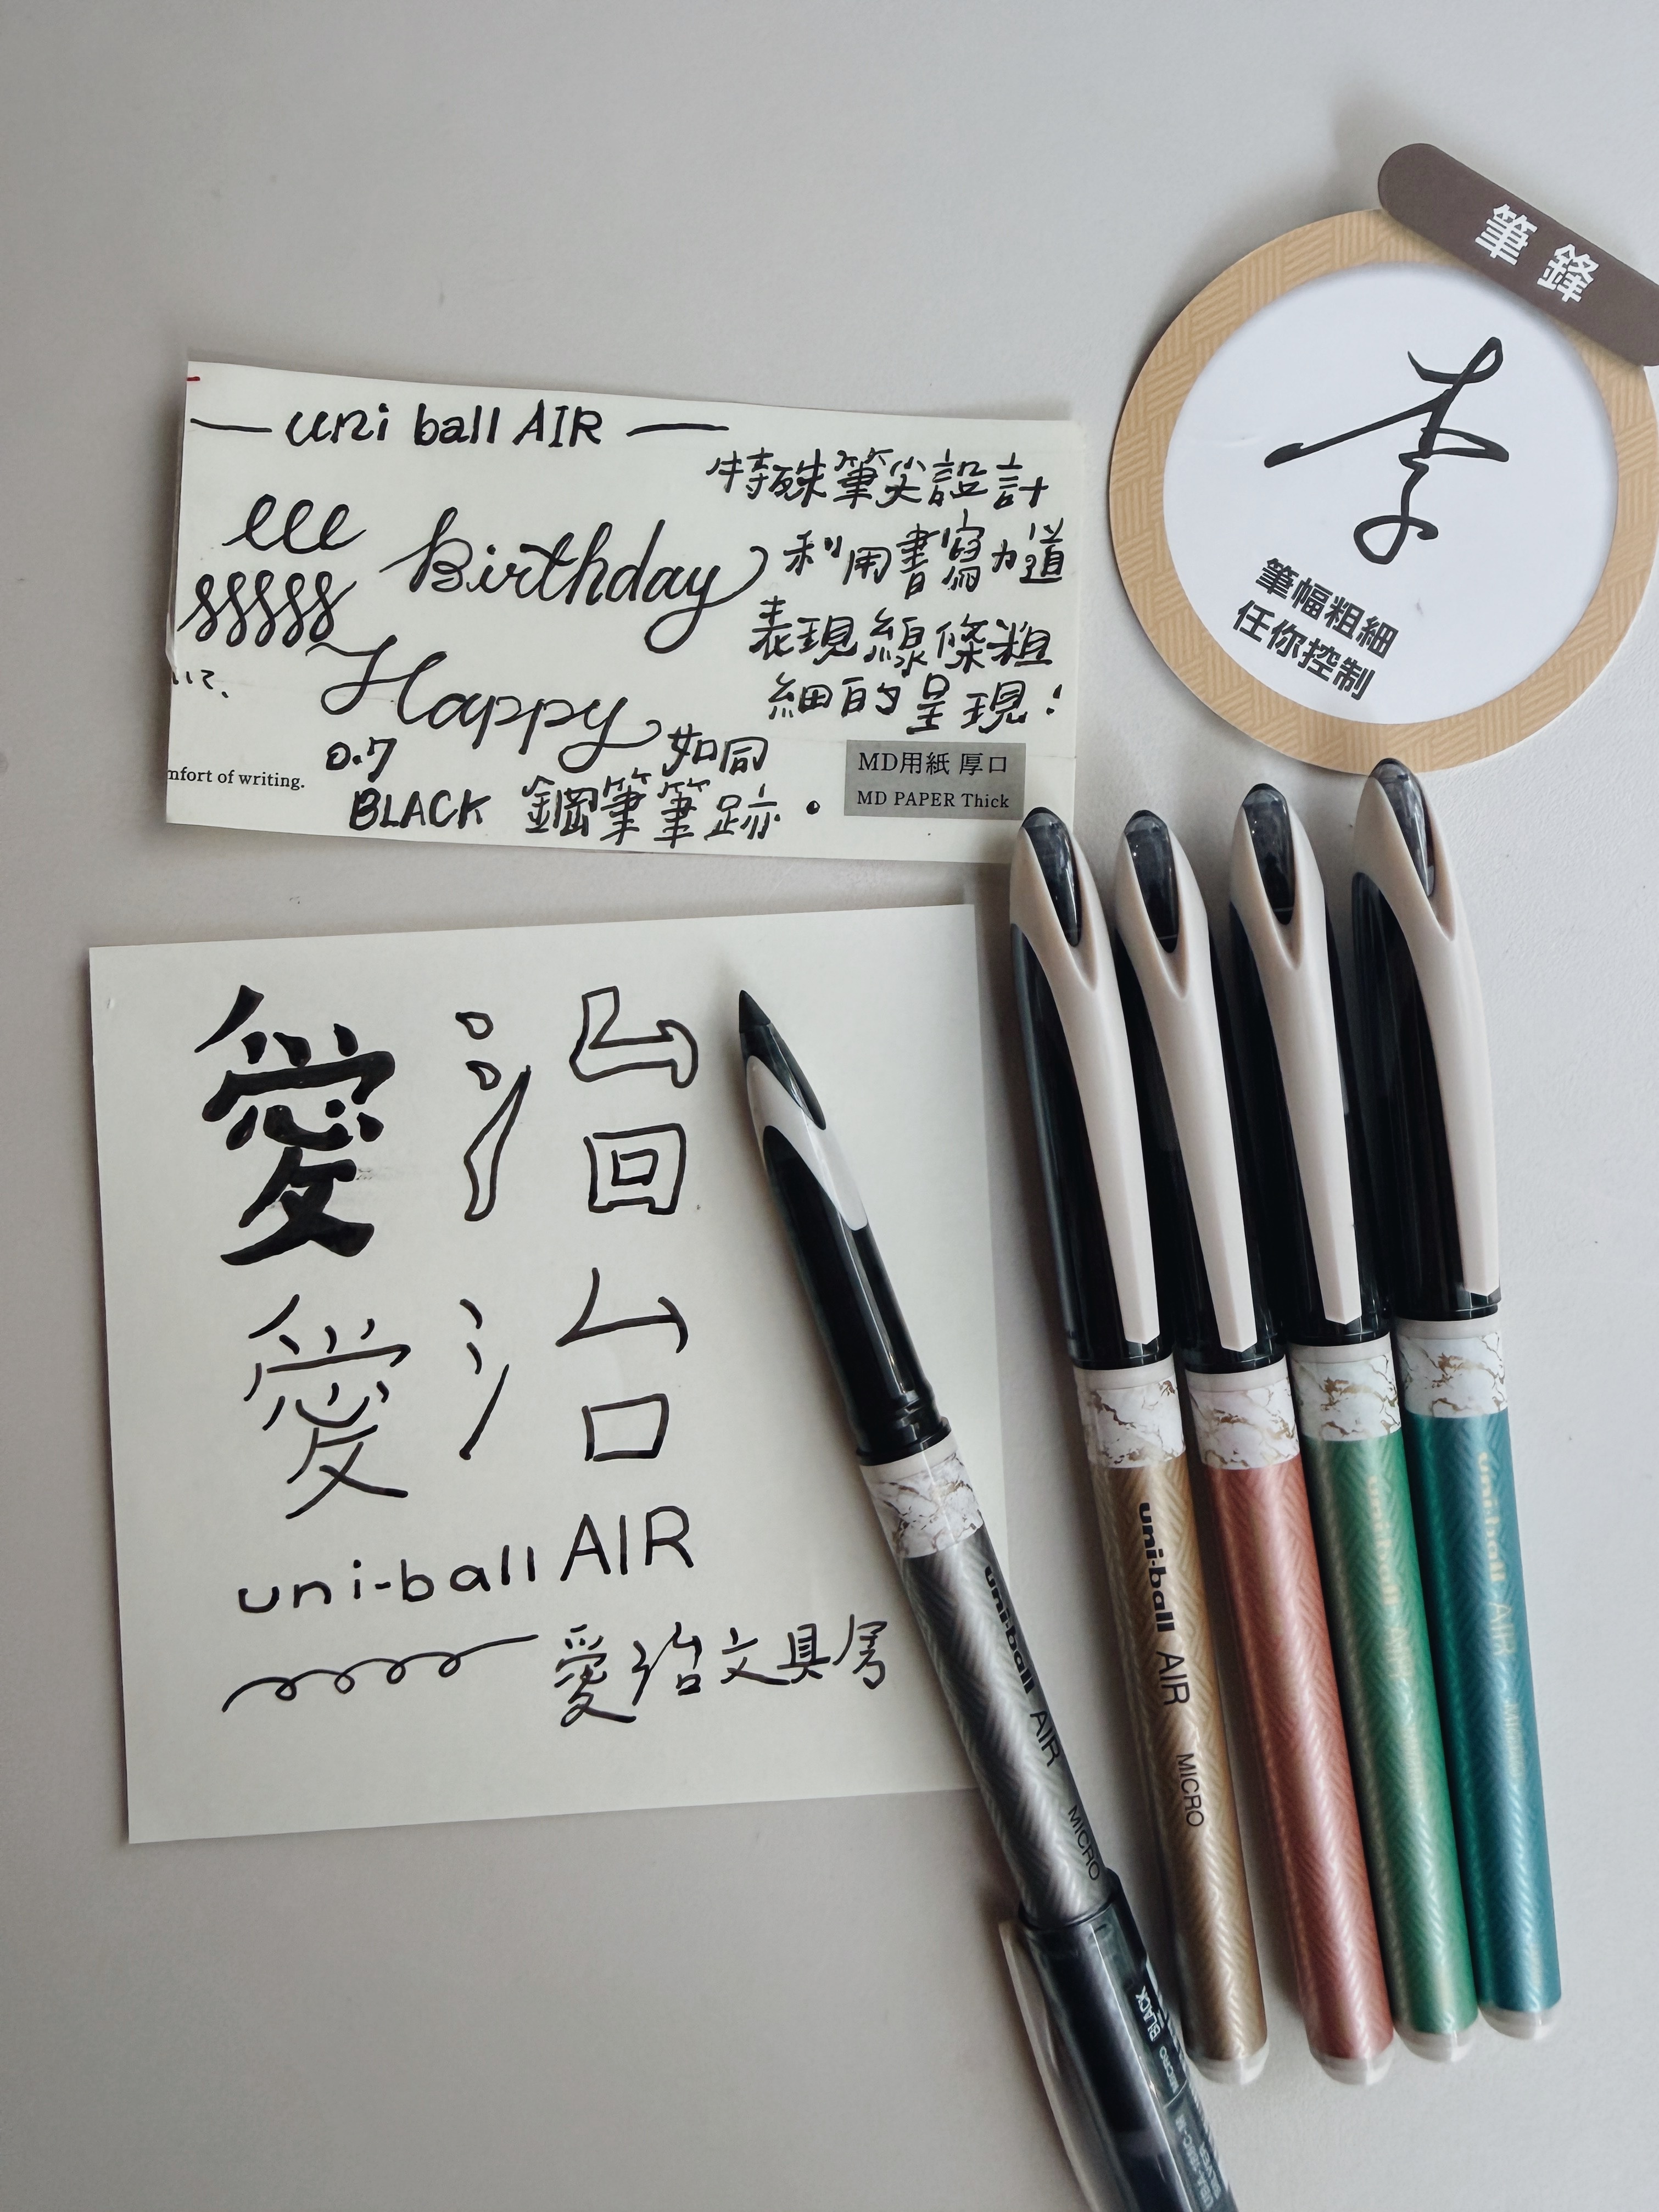 筆鋒
李
筆幅粗細
任你控制
— uni ball AIR —
特殊筆尖設計
利用書寫力道
表現線條粗
細的呈現!
eee
Birthday
sssss
Happy
如同
鋼筆筆跡.
0.7
BLACK
mfort of writing.
MD用紙 厚口
MD PAPER Thick
愛治
愛治
uni-ball AIR
愛治文具房
uni-ball AIR MICRO
MICRO BLACK
uni-ball AIR MICRO
uni-ball AIR
uni-ball AIR MICRO